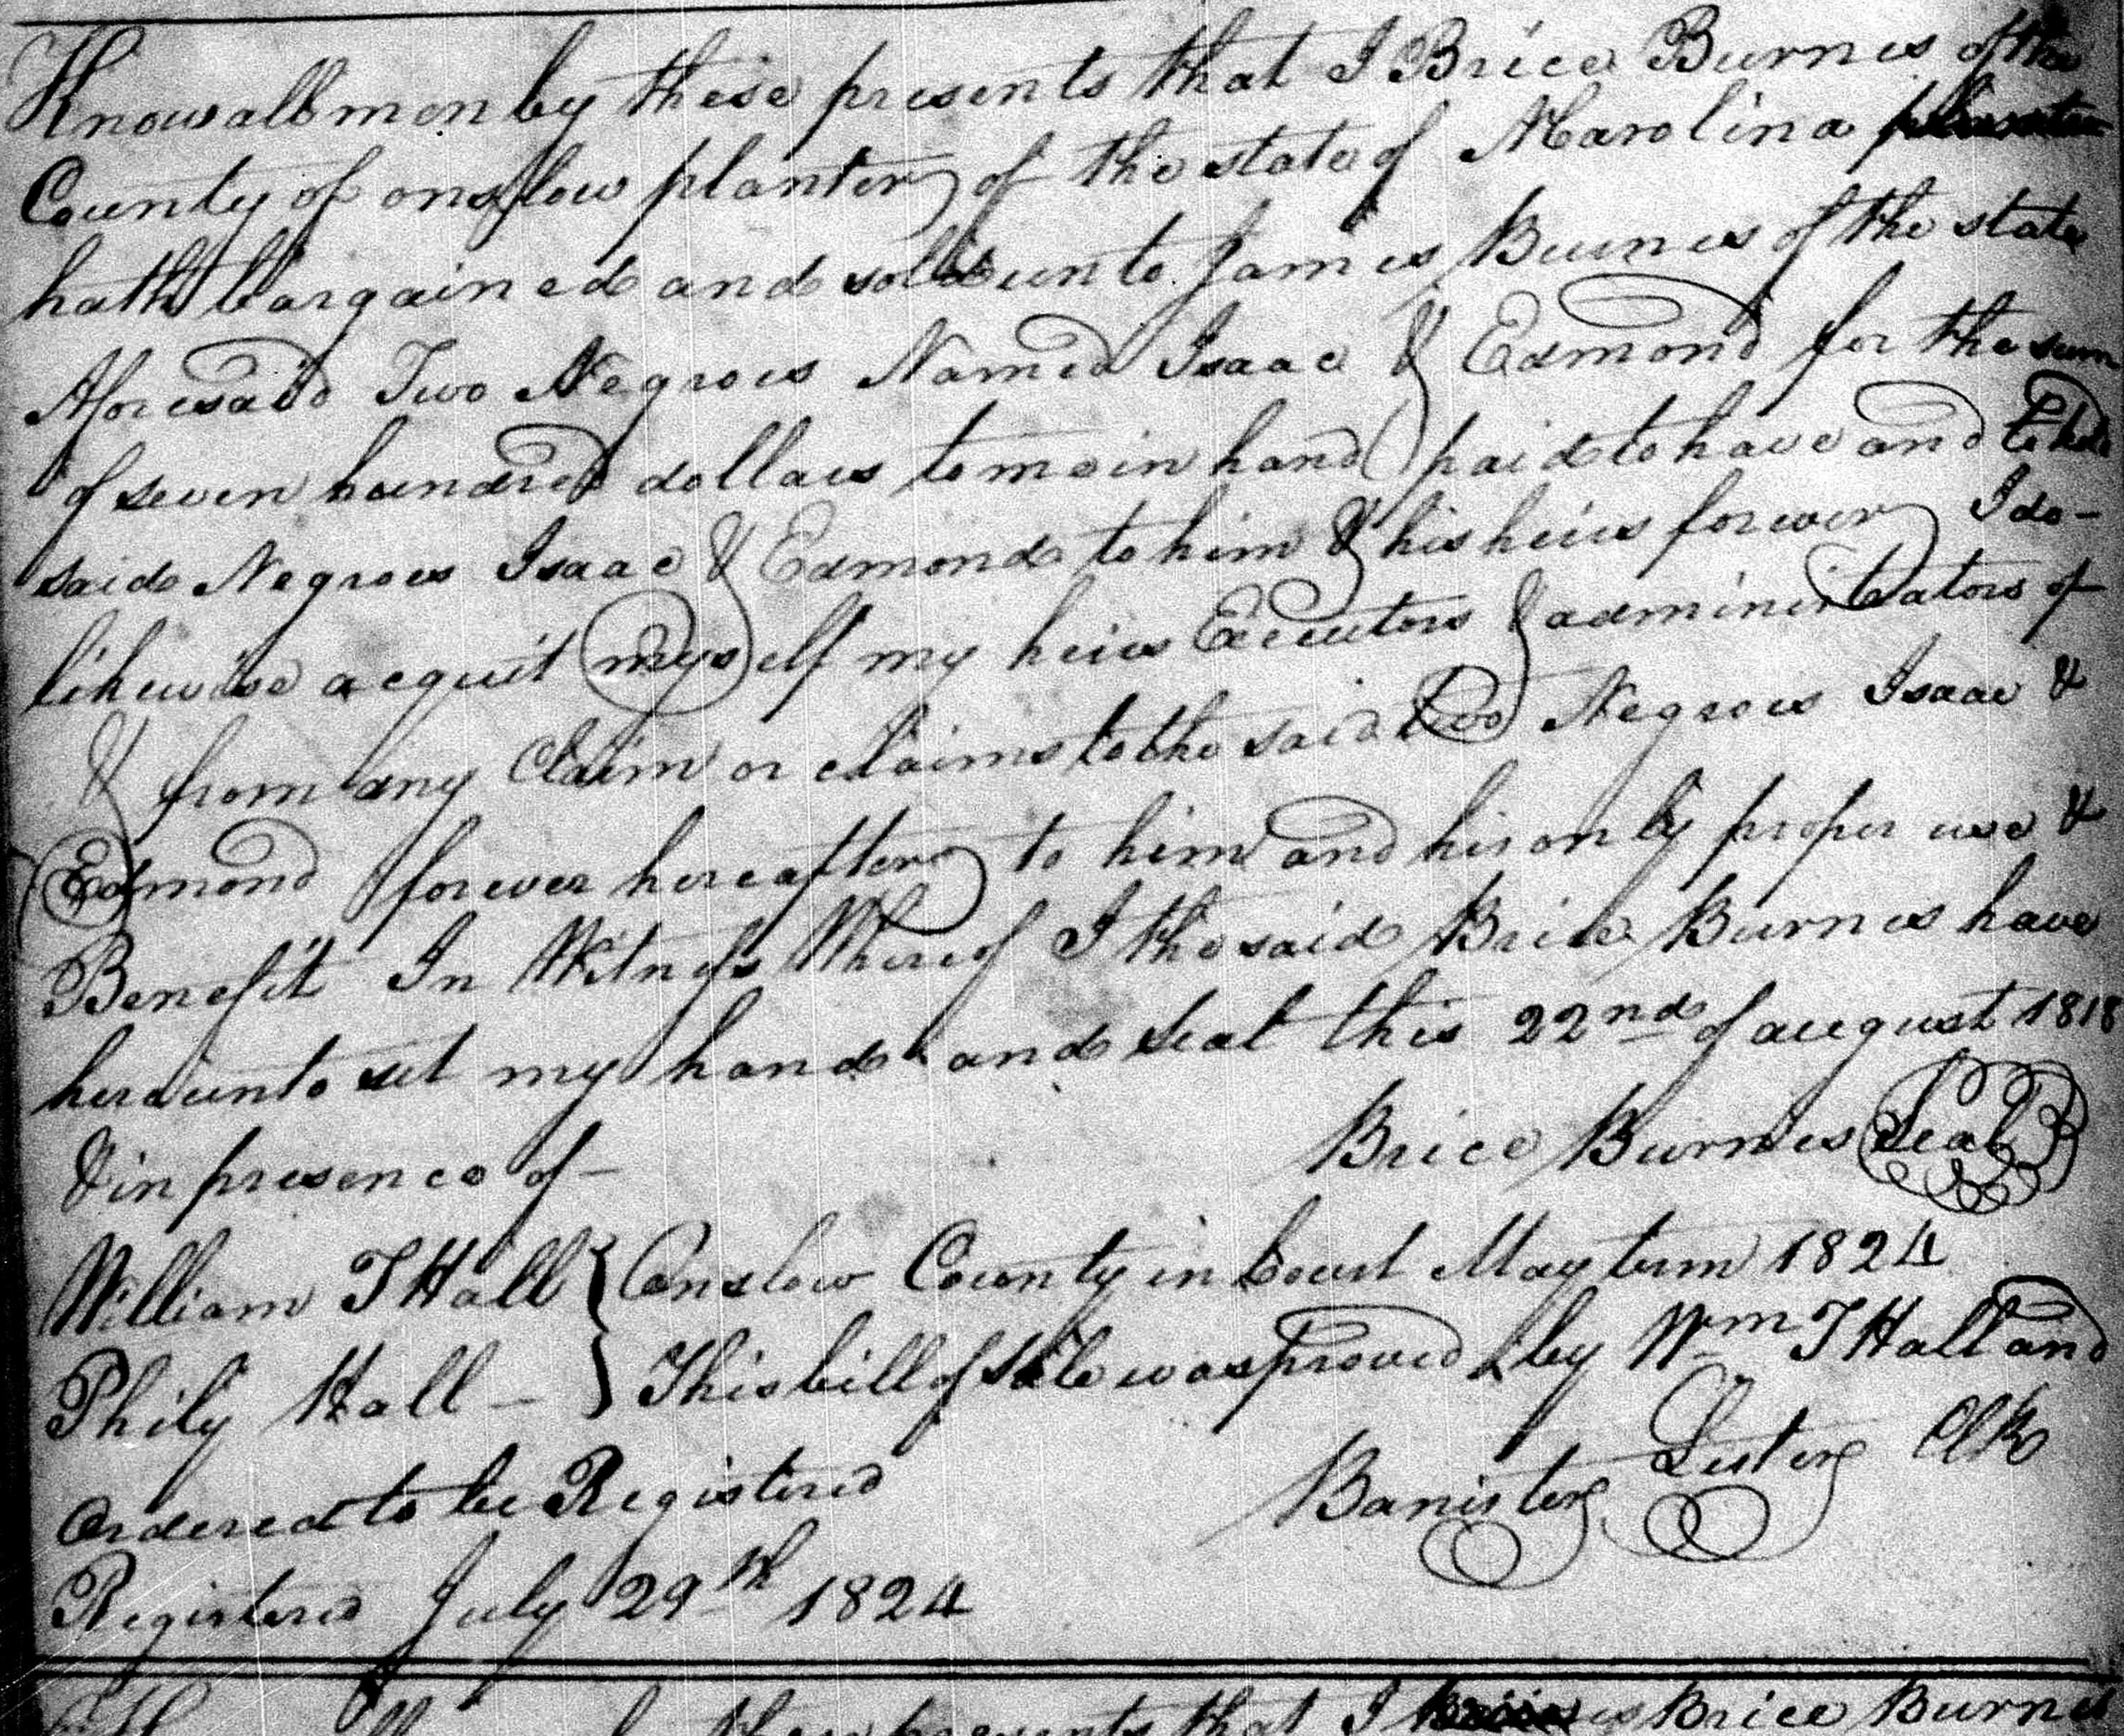 Know all men by these presents that I Brice Burnes of the
County of onslow planter of the state of N Carolina
hath bargained and sold unto James Burnes of the state
Aforesaid Two Negroes Named Isaac & Edmond for the sum
of seven hundred dollars to me in hand paid to have and to hold
said Negroes Isaac & Edmond to him & his heirs forever I do-
likewise acquit myself my heirs Executors & administrators of
& from any Claim or claims to the said two Negroes Isaac &
Edmond forever hereafter to him and his only proper use &
Benefit In Witness Whereof I the said Brice Burnes have
hereunto set my hand and seal this 22nd of august 1818
& in presence of - Brice Burnes Seal
William T Hall } Onslow County in Court May term 1824
Phily Hall - } This bill of sale was proved by Wm T Hall and
Ordered to be Registered Banister Lester Clk
Registered July 29th 1824
these presents that I Brice Burnes